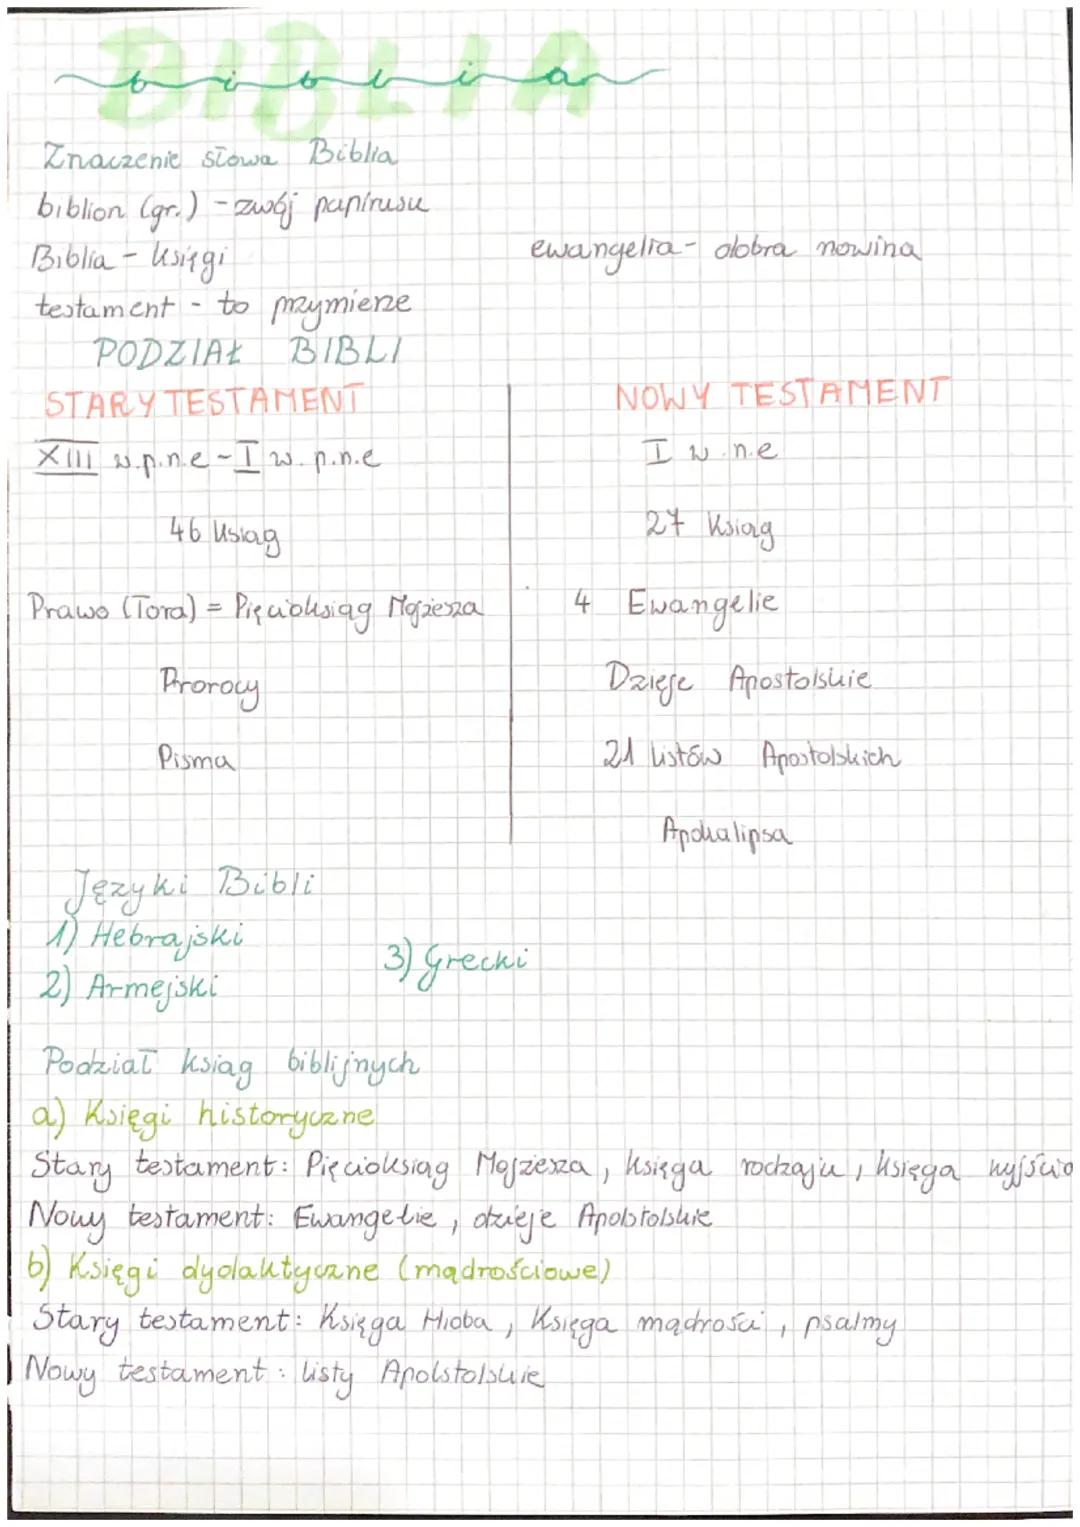 BIBLIA
biblia
Znaczenie słowa Biblia
biblion (gr.) - zwój papirusu
Biblia - księgi
ewangelia - dobra nowina
testament - to przymierze
PODZIAŁ BIBLI
STARY TESTAMENT
NOWY TESTAMENT
XIII w.p.n.e - I w. p.n.e
I w n.e
46 ksiąg
27 ksiąg
Prawo (Tora) = Pięcioksiąg Mojżesza
4 Ewangelie
Prorocy
Dzieje Apostolskie
Pisma
21 listów Apostolskich
Apokalipsa
Języki Bibli
1) Hebrajski
2) Armejski
3) Grecki
Podział ksiąg biblijnych
a) Księgi historyczne
Stary testament: Pięcioksiąg Mojżesza, księga rodzaju, księga wyjścia
Nowy testament: Ewangelie, dzieje Apolstolskie
b) Księgi dydaktyczne (mądrościowe)
Stary testament: Księga Hioba, Księga mądrości, psalmy
Nowy testament: listy Apolstolskie